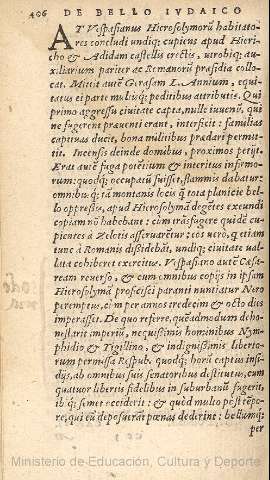 406 DE BELLO IVDAICO
AT Vespasianus Hierosolymorũ habitato-
res concludi undiq; cupiens apud Hieri-
cho & Adidam castellis erectis, utrobiq; au-
xiliarium pariter ac Romanorũ præsidia collo-
cat. Mittit autẽ Gerasam L. Annium, equi-
tatus ei parte muliq; peditibus attributis. Qui
primo aggressu ciuitate capta, mille iuuenũ, qui
ne fugerent præuenti erant, interficit: familias
captiuas ducit, bona militibus prædari permit-
tit. Incensis deinde domibus, proximos petijt.
Erat autẽ fuga potẽtium & interitus infirmo-
rum: quodq; occupatũ fuisset, flammis dabatur:
omnibusq; tã montanis locis q̃ tota planicie bel-
lo oppressis, apud Hierosolymã degẽtes exeundi
copiam nõ habebant: cùm trãsfugere quidẽ cu-
pientes à Zelotis asseruarẽtur: eos uerò, q etiam
tunc à Romanis dissidebãt, undiq; ciuitate ual-
lata cohiberet exercitus. Vespasiano autẽ Cæsa-
ream reuerso, & cum omnibus copijs in ipsam
Hierosolymã proficisci paranti nuntiatur Nero
peremptus, cùm per annos tredecim & octo dies
imperasset. De quo referre, quẽadmodum deho-
nestarit imperiũ, nequissimis hominibus Nym-
phidio & Tigillino, & indignissimis liberto-
rum permissa Respub. quodq; horũ captus insi-
dijs, ab omnibus suis senatoribus destitutus, cum
quatuor liberis fidelibus in suburbanũ fugerit,
ibiq; semet occiderit: & quòd multo pòst tẽpo-
re, qui eũ deposuerãt pœnas dederint: bellumq;
per
Ministerio de Educación, Cultura y Deporte